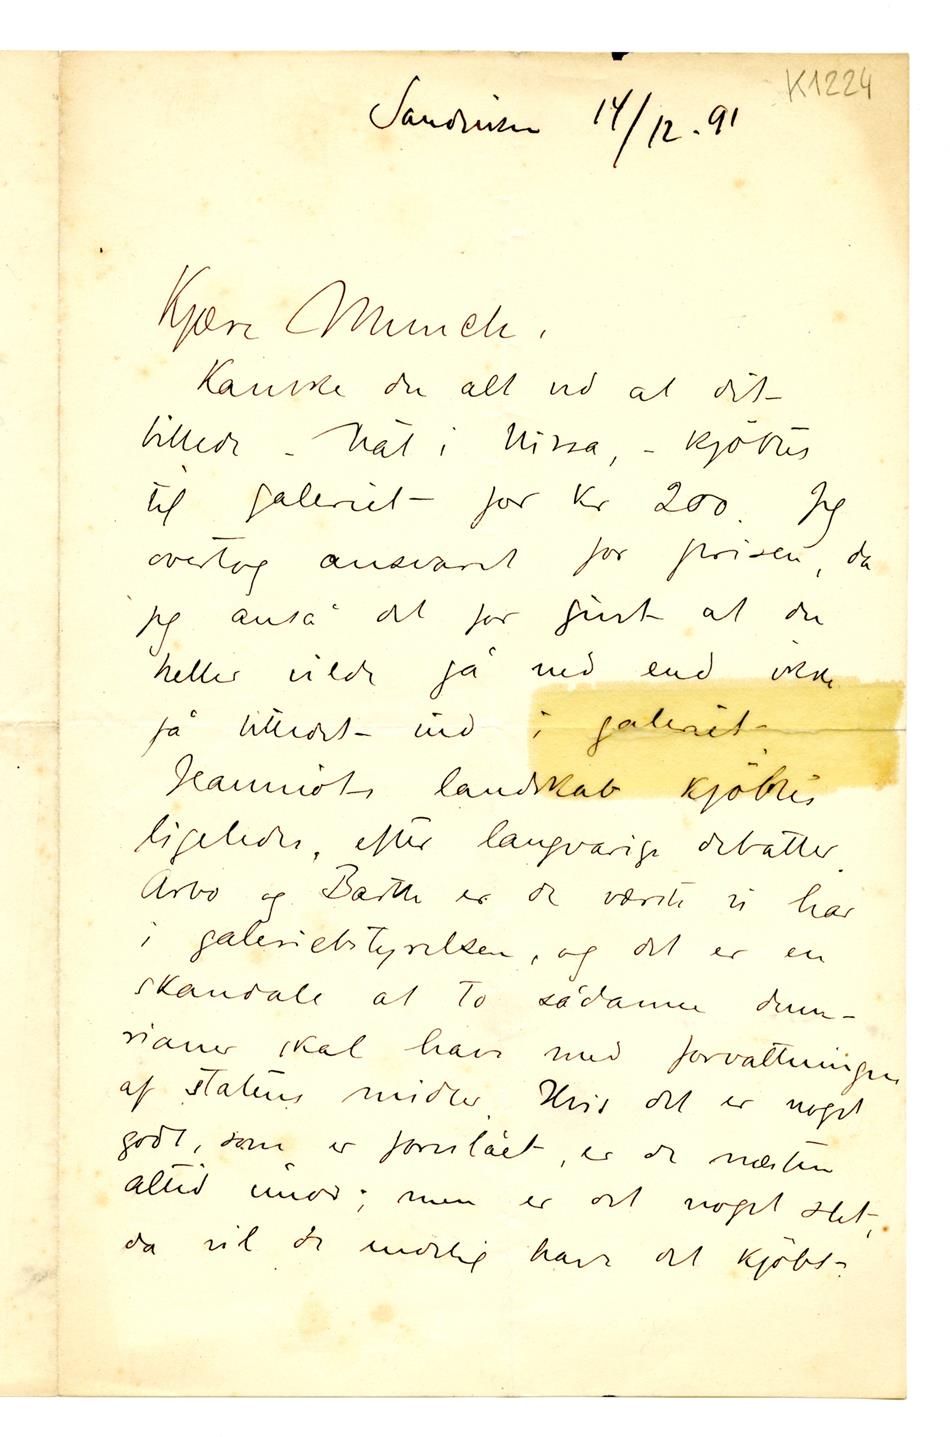 K1224
Sandviken 14/12. 91
Kjære Munch,
Kanske du alt ved at dit
billede – Nat i Nizza, – kjöbtes
til galeriet for Kr 200. Jeg
overtog ansvaret for prisen, da
jeg anså det for givet at du
heller vilde gå ned end ikke
få billedet ind i galeriet
Jeanniots landskab kjöbtes
ligeledes, efter langvarige debatter.
Arbo og Barth er de værste vi har
i galeribstyrelsen, og det er en
skandale at to sådanne dum-
rianer skal have med forvaltningen
af statens midler. Hvis det er noget
godt, som er foreslået, er de næsten
altid imod; men er det noget slet,
da vil de endelig have det kjöbt.